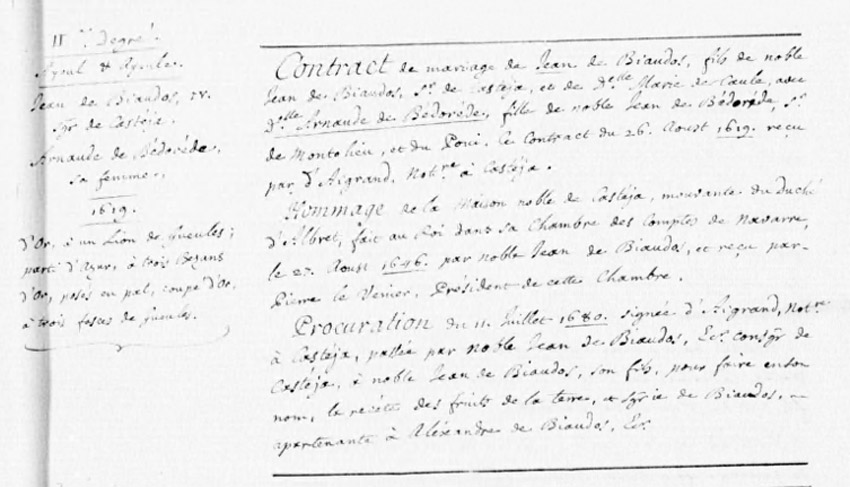 IIme. Degré.
Ayeul & Ayeule.
Jean de Biaudos, IV.
Sgr. de Castéja.
Arnaude de Bédorède,
sa femme,
1619.
d'Or, à un Lion de gueules;
parti d'Azur, à trois Bezans
d'Or, posés en pal, coupé d'Or,
à trois fasces de gueules.
Contract de mariage de Jean de Biaudos, fils de noble
Jean de Biaudos, Sr. de Castéja, et de Delle Marie de Caule, avec
Delle Arnaude de Bédorède, fille de noble Jean de Bédorède, Sr.
de Montolieu, et du Poui. Ce Contract du 26. Aoust 1619. reçu
par d'Aigrand, Notre. à Castéja.
Hommage de la Maison noble de Castéja, mouvante du Duché
d'Albret, fait au Roi dans sa Chambre des Comptes de Navarre,
le 27. Aoust 1646. par noble Jean de Biaudos, et reçu par
Pierre le Venier, Président de cette Chambre.
Procuration du 11. Juillet 1680. signée d'Aigrand, Notre
à Castéja, passée par noble Jean de Biaudos, Ecr. consgr. de
Castéja, à noble Jean de Biaudos, son fils, pour faire en son
nom, la recéte des fruits de la terre, et sgrie de Biaudos, ~
apartenante à Aléxandre de Biaudos, Ecr.